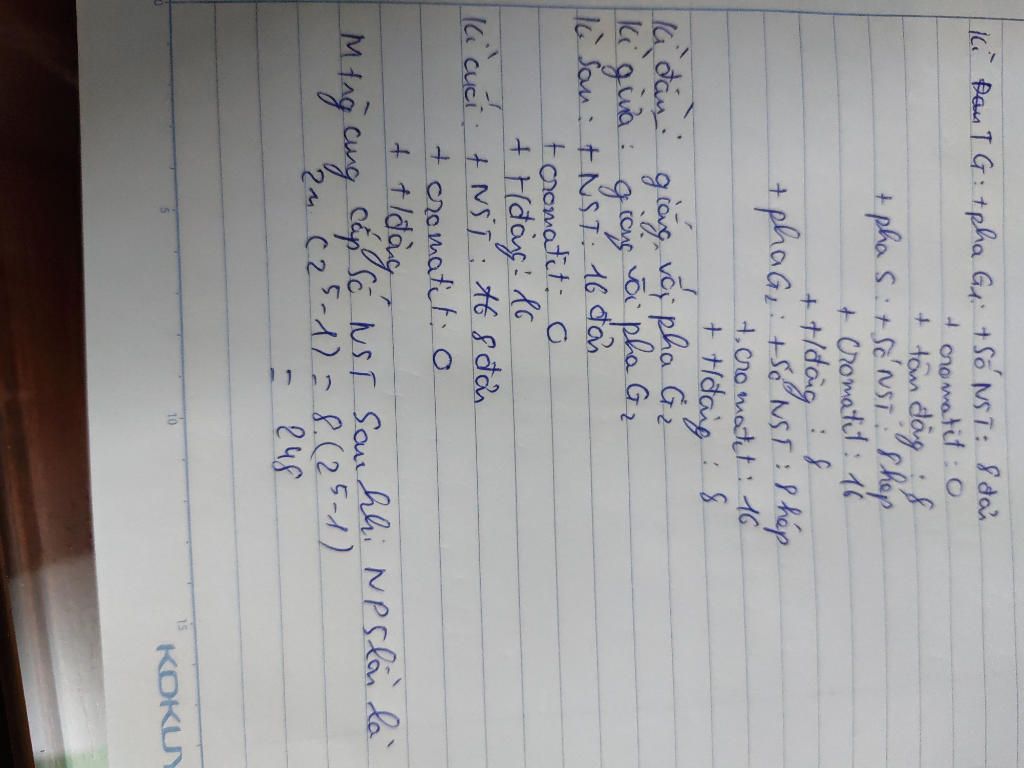 Kì Đầu TG: + pha G1: + Số NST: 8 đơn
+ cromatit: 0
+ tâm động: 8
+ pha S: + Số NST: 8 kép
+ Cromatit: 16
+ t/động: 8
+ pha G2: + Số NST: 8 kép
+ cromatit: 16
+ t/động: 8
Kì đầu: giống với pha G2
Kì giữa: giống với pha G2
Kì Sau: + NST: 16 đơn
+ cromatit: 0
+ t/động: 16
Kì cuối: + NST: 8 đơn
+ cromatit: 0
+ t/động
Mtrg cung cấp Số NST Sau khi NP 5 lần là
2n. (2⁵-1) = 8.(2⁵-1)
= 248
5
10
15
KOKUY